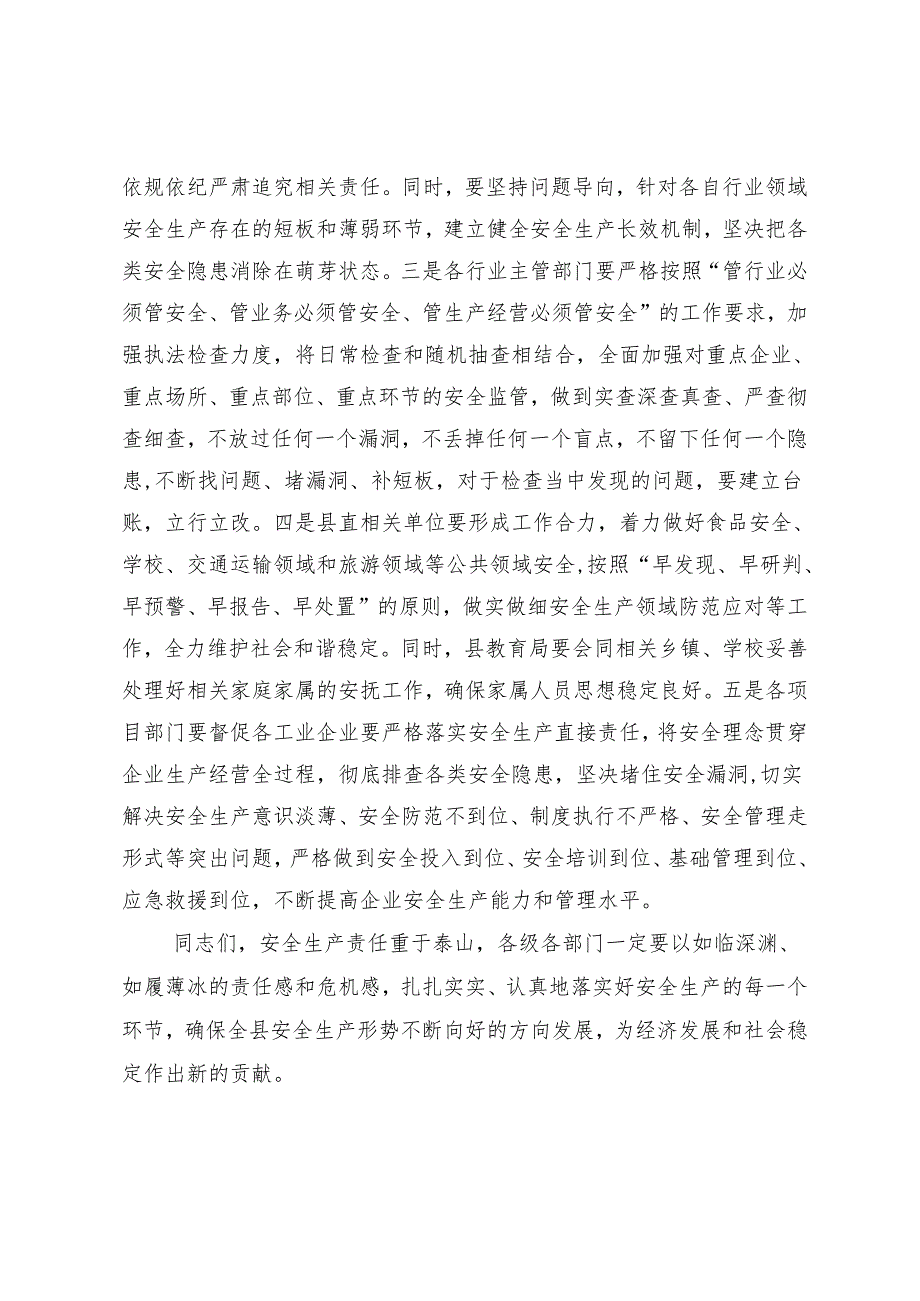 依规依纪严肃追究相关责任。同时，要坚持问题导向，针对各自行业领域
安全生产存在的短板和薄弱环节，建立健全安全生产长效机制，坚决把各
类安全隐患消除在萌芽状态。三是各行业主管部门要严格按照“管行业必
须管安全、管业务必须管安全、管生产经营必须管安全”的工作要求，加
强执法检查力度，将日常检查和随机抽查相结合，全面加强对重点企业、
重点场所、重点部位、重点环节的安全监管，做到实查深查真查、严查彻
查细查，不放过任何一个漏洞，不丢掉任何一个盲点，不留下任何一个隐
患,不断找问题、堵漏洞、补短板，对于检查当中发现的问题，要建立台
账，立行立改。四是县直相关单位要形成工作合力，着力做好食品安全、
学校、交通运输领域和旅游领域等公共领域安全,按照“早发现、早研判、
早预警、早报告、早处置”的原则，做实做细安全生产领域防范应对等工
作，全力维护社会和谐稳定。同时，县教育局要会同相关乡镇、学校妥善
处理好相关家庭家属的安抚工作，确保家属人员思想稳定良好。五是各项
目部门要督促各工业企业要严格落实安全生产直接责任，将安全理念贯穿
企业生产经营全过程，彻底排查各类安全隐患，坚决堵住安全漏洞,切实
解决安全生产意识淡薄、安全防范不到位、制度执行不严格、安全管理走
形式等突出问题，严格做到安全投入到位、安全培训到位、基础管理到位、
应急救援到位，不断提高企业安全生产能力和管理水平。
同志们，安全生产责任重于泰山，各级各部门一定要以如临深渊、
如履薄冰的责任感和危机感，扎扎实实、认真地落实好安全生产的每一个
环节，确保全县安全生产形势不断向好的方向发展，为经济发展和社会稳
定作出新的贡献。